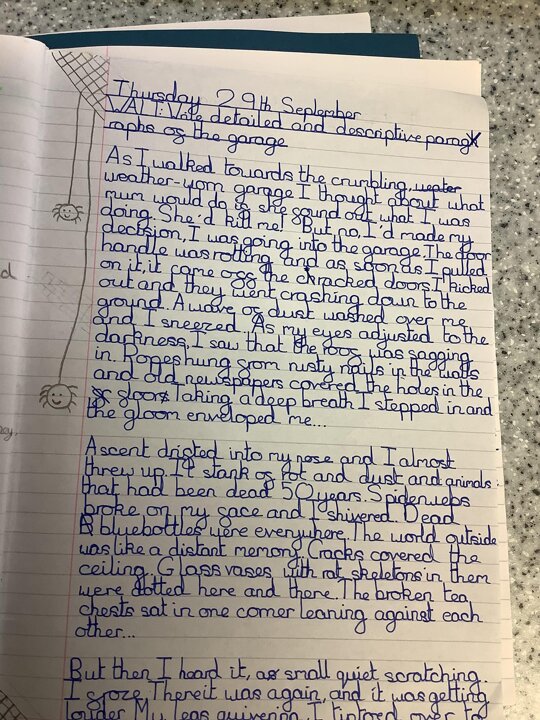 Thursday 29th September
WALT: Write detailed and descriptive parag
raphs of the garage
As I walked towards the crumbling, weater
weather-worn garage I thought about what
mum would do if she found out what I was
doing. She'd kill me! But no, I'd made my
decision, I was going into the garage. The door
handle was rotting and as soon as I pulled
on it, it came off. The cracked doors I kicked
out and they went crashing down to the
ground. A wave of dust washed over me
and I sneezed. As my eyes adjusted to the
darkness, I saw that the roof was sagging
in. Ropes hung from rusty nails in the walls
and old newspapers covered the holes in the
floor. Taking a deep breath I stepped in and
the gloom enveloped me...
A scent drifted into my nose and I almost
threw up. It stank of rot and dust and animals
that had been dead 50 years. Spiderwebs
broke on my face and I shivered. Dead
bluebottles were everywhere. The world outside
was like a distant memory. Cracks covered the
ceiling. Glass vases with rat skeletons in them
were dotted here and there. The broken tea
chests sat in one corner leaning against each
other...
But then I heard it, a small quiet scratching.
I froze. There it was again, and it was getting
louder. My legs quivering I tiptoed over to